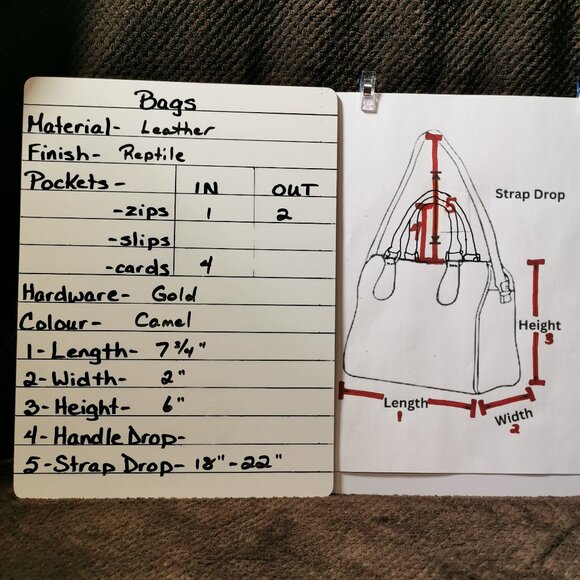 Bags
Material- Leather
Finish- Reptile
Pockets- IN OUT
-zips 1 2
-slips
-cards 4
Hardware- Gold
Colour- Camel
1-Length- 7 3/4"
2-Width- 2"
3-Height- 6"
4-Handle Drop-
5-Strap Drop- 18"-22"
Strap Drop
5
4
Height
3
Length
1
Width
2